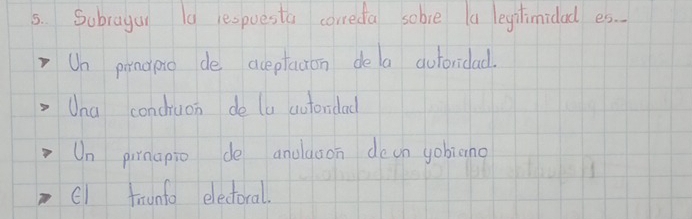 5. Subrayar la respuesta correcta sobre la legitimidad es...
Un principio de aceptacion de la autoridad.
Una condicion de la autoridad
Un principio de anulacion de un gobierno
El triunfo electoral.